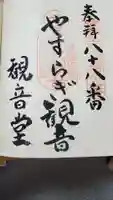 奉拝八十八番
やすらぎ観音
観音堂